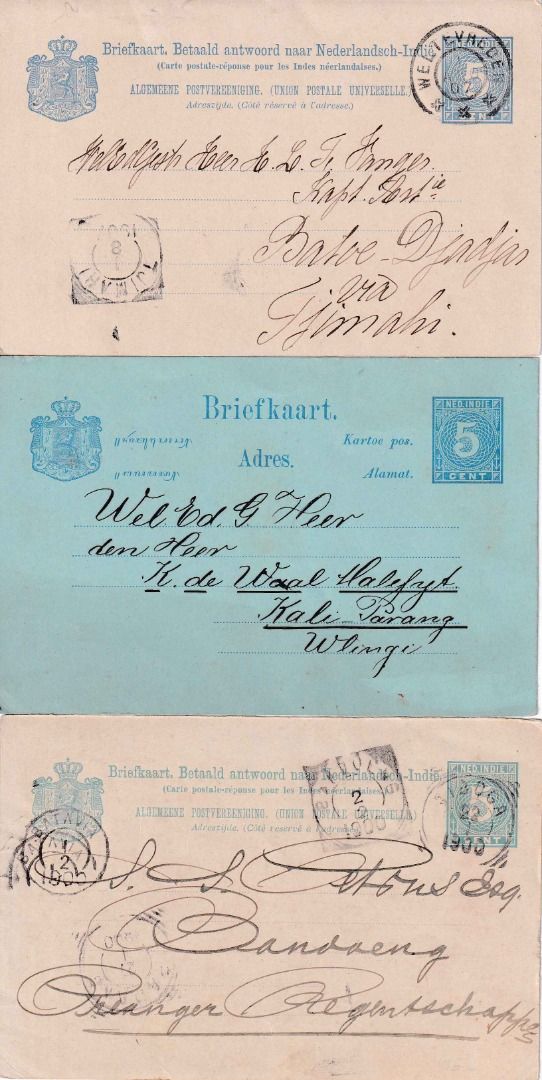 Briefkaart. Betaald antwoord naar Nederlandsch-Indië
(Carte postale-réponse pour les Indes néerlandaises.)
ALGEMEENE POSTVEREENIGING. (UNION POSTALE UNIVERSELLE.)
Adreszijde. (Côté réservé à l'adresse.)
5
CENT
WELTEVREDEN
WelEdGestr Heer H. L.
Kapt. Art ie
Batoe-Djadjar
via
Tjimahi.
TJIMAHI
Briefkaart.
Adres.
Kartoe pos.
Alamat.
NED. INDIE
5
CENT
Wel Ed. G Heer
den Heer
K. de Waal Malefyt.
Kali-Parang
Wlingi
Briefkaart. Betaald antwoord naar Nederlandsch-Indië
(Carte postale-réponse pour les Indes néerlandaises.)
ALGEMEENE POSTVEREENIGING. (UNION POSTALE UNIVERSELLE.)
Adreszijde. (Côté réservé à l'adresse.)
NED. INDIE
5
CENT
BATAVIA
1900
2
1900
22
1900
S. S. Esq.
Bandoeng
Preanger Regentschappen